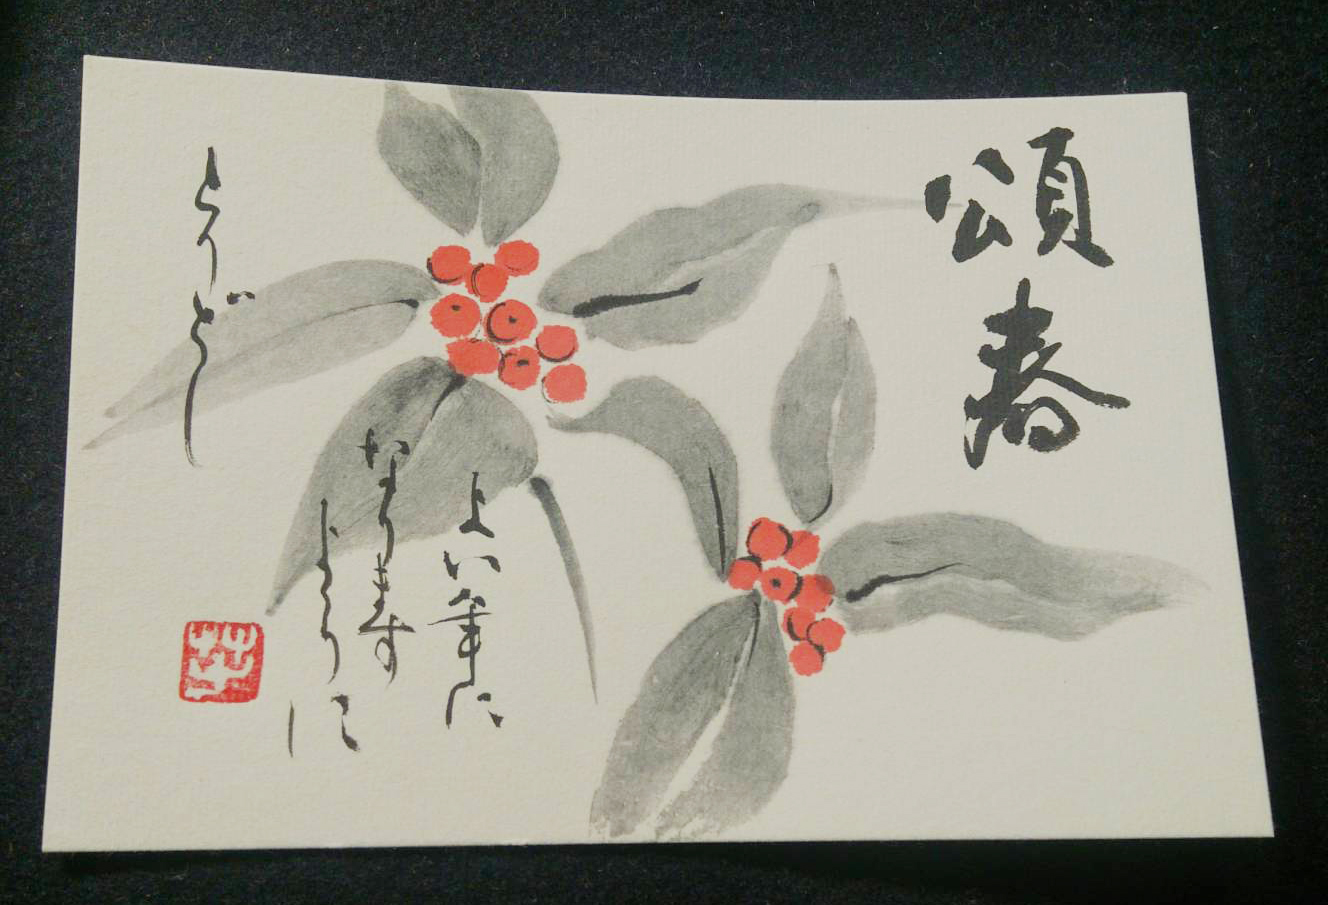 頌春
よい年に
なります
ように
とりどし